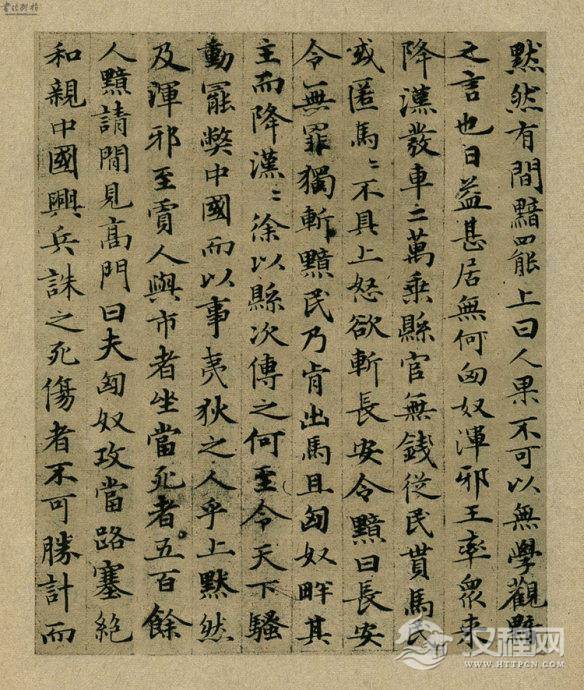 默然有間黯罷上曰人果不可以無學觀黯
之言也日益甚居無何匈奴渾邪王率衆来
降漢發車二萬乗縣官無銭従民貰馬民
或匿馬〻不具上怒欲斬長安令黯曰長安
令無罪獨斬黯民乃肯出馬且匈奴畔其
主而降漢〻徐以縣次傳之何至令天下騷
動罷弊中國而以事夷狄之人乎上默然
及渾邪至賈人與市者坐當死者五百餘
人黯請閒見高門曰夫匈奴攻當路塞絶
和親中國興兵誅之死傷者不可勝計而
汉程网
WWW.HTTPCN.COM